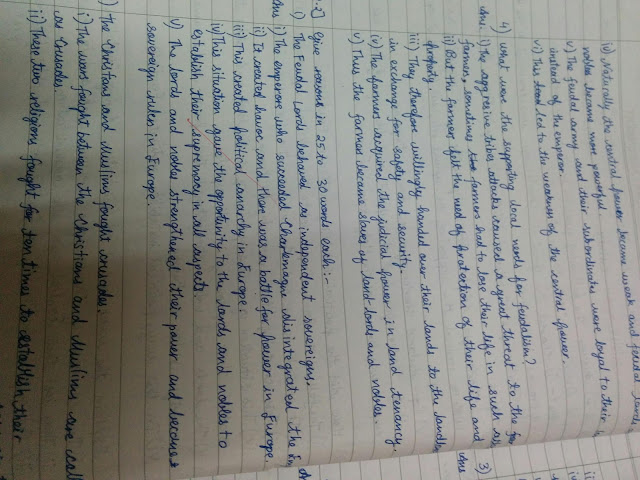 iv) Naturally the central power became weak and feudal lords,
nobles became more powerful.
v) The feudal army and their subordinates were loyal to their
instead of the emperor.
vi) This led to the weakness of the central power.
4) What were the supporting local needs for feudalism?
Ans. i) The aggressive tribes attacks caused a great threat to the
farmers, sometimes the farmers had to lose their life in such
ii) But the farmer felt the need of protection of their life and
property.
iii) They therefore willingly handed over their lands to the
in exchange for safety and security.
iv) The farmers acquired the judicial power in land tenancy.
v) Thus the farmer became slaves of land lords and nobles.
.2] Give reasons in 25 to 30 words each:-
i) The Feudal Lords behaved as independent sovereigns.
Ans i) The emperors who succeeded Charlemagne disintegrated the
ii) Is created havoc and there was a battle for power in Europe.
iii) This created political anarchy in Europe.
iv) This situation gave the opportunity to the lords and nobles to
establish their supremacy in all aspects.
v) The lords and nobles strengthened their power and became
sovereign rulers in Europe.
) The Christians and Muslims fought crusades.
i) The wars fought between the Christians and Muslims are
as Crusades.
ii) These two religions fought for ten times to establish their
3)
Ans